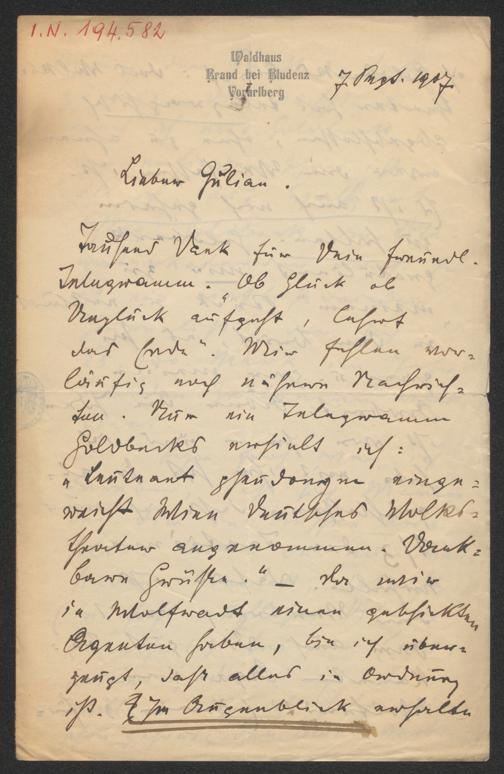 I.N. 194.582
Waldhaus
Brand bei Bludenz
Vorarlberg
7. Sept. 1907.
Lieber Julian.
Tausend Dank für Dein freundl.
Telegramm. Ob Glück ob
Unglück aufgeht, lehrt
das Ende". Mir fehlen vor-
läufig noch nähere Nachrich-
ten. Nur ein Telegramm
Goldbecks erhielt ich:
„Leutnant pseudonym einge-
reicht Wien Deutsches Volks-
theater angenommen. Dank-
bare Grüße." – Da wir
in Wolfradt einen geschickten
Agenten haben, bin ich über-
zeugt, daß alles in Ordnung
ist. Im Augenblick erhalte